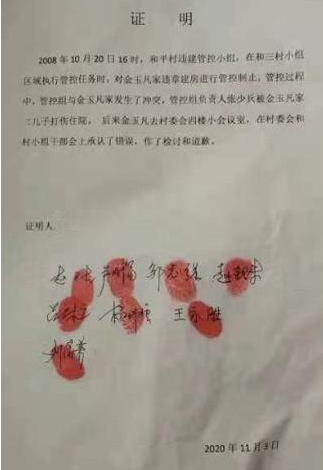 证 明
2008 年 10 月 20 日 16 时，和平村违建管控小组，在和三村小组
区域执行管控任务时，对金玉凡家违章建房进行管控制止，管控过程
中，管控组与金玉凡家发生了冲突，管控组负责人张少兵被金玉凡家
二儿子打伤住院， 后来金玉凡去村委会四楼小会议室，在村委会和
村小组干部会上承认了错误，作了检讨和道歉。
证明人
王永胜
2020 年 11 月 3 日